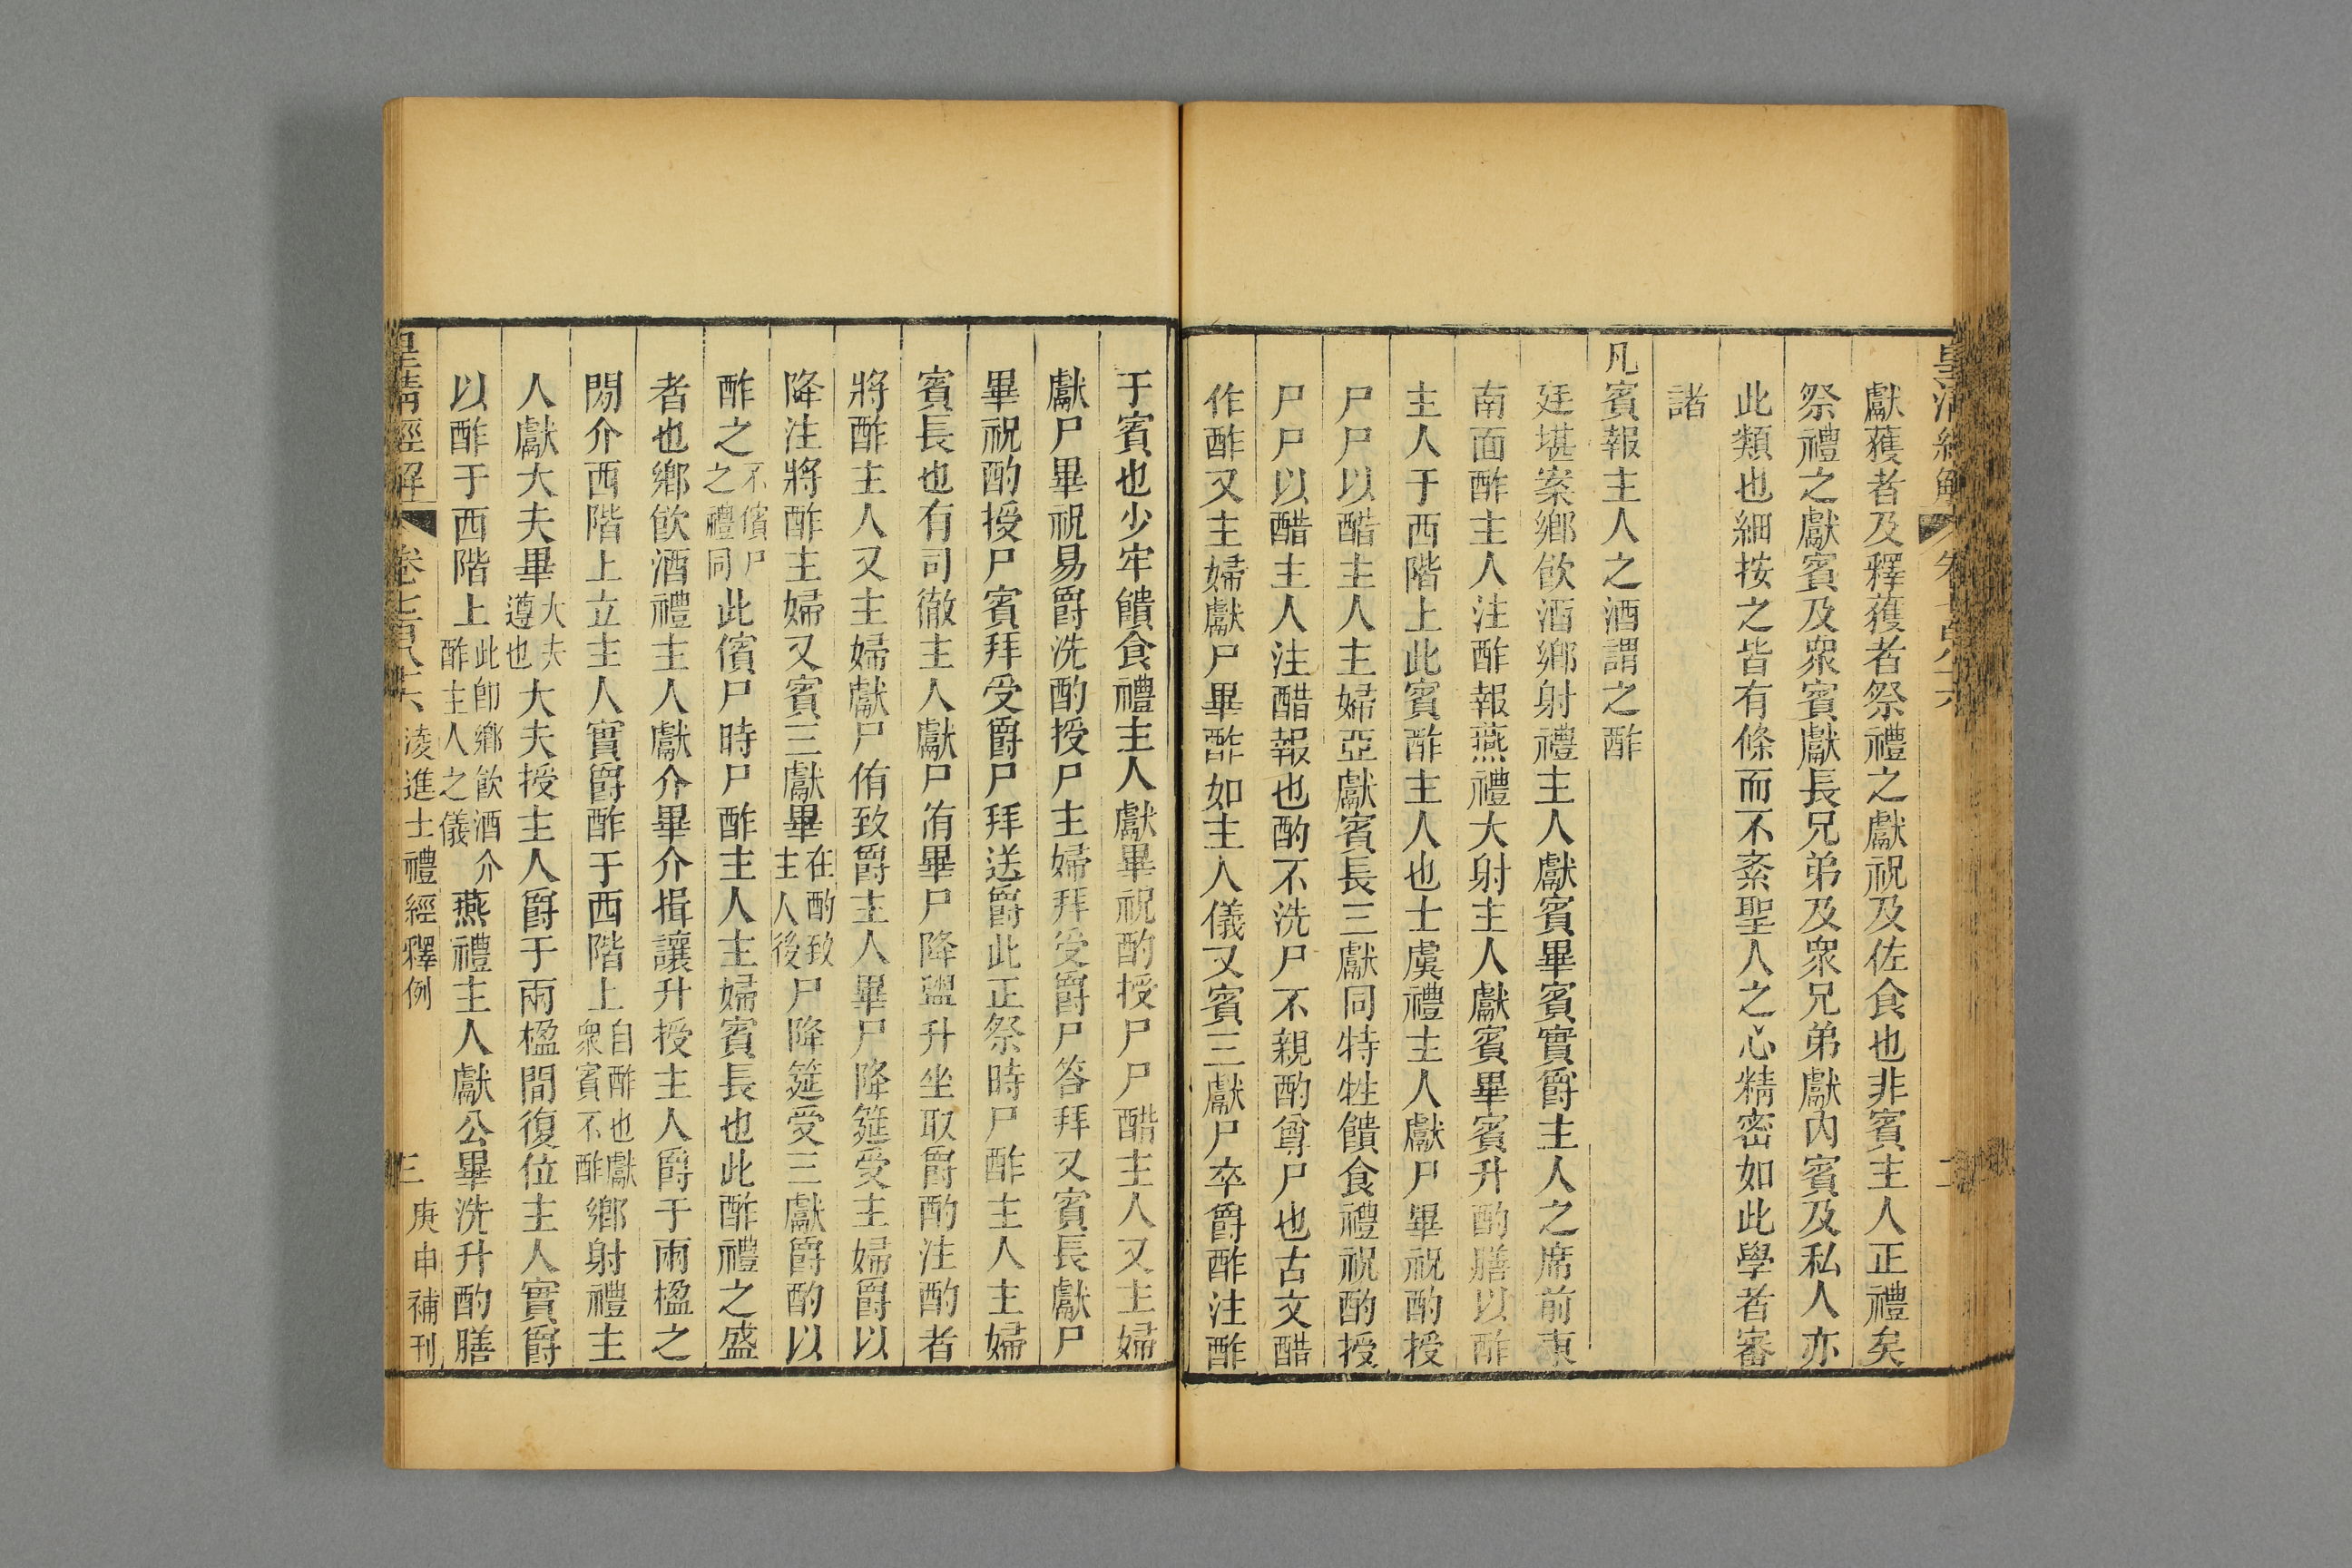 獻獲者及釋獲者祭禮之獻祝及佐食也非賓主人正禮矣
祭禮之獻賓及衆賓獻長兄弟及衆兄弟獻內賓及私人亦
此類也細按之皆有條而不紊聖人之心精密如此學者審
諸
凡賓報主人之酒謂之酢
廷堪案鄉飮酒鄉射禮主人獻賓畢賓實爵主人之席前東
南面酢主人注酢報燕禮大射主人獻賓畢賓升酌膳以酢
主人于西階上此賓酢主人也士虞禮主人獻尸畢祝酌授
尸尸以醋主人主婦亞獻賓長三獻同特牲饋食禮祝酌授
尸尸以醋主人注醋報也酌不洗尸不親酌尊尸也古文醋
作酢又主婦獻尸畢酢如主人儀又賓三獻尸卒爵酢注酢
于賓也少牢饋食禮主人獻畢祝酌授尸尸醋主人又主婦
獻尸畢祝易爵洗酌授尸主婦拜受爵尸答拜又賓長獻尸
畢祝酌授尸賓拜受爵尸拜送爵此正祭時尸酢主人主婦
賓長也有司徹主人獻尸侑畢尸降盥升坐取爵酌注酌者
將酢主人又主婦獻尸侑致爵主人畢尸降筵受主婦爵以
降注將酢主婦又賓三獻畢在酌致主人後尸降筵受三獻爵酌以
酢之不儐尸之禮同此儐尸時尸酢主人主婦賓長也此酢禮之盛
者也鄉飮酒禮主人獻介畢介揖讓升授主人爵于兩楹之
閒介西階上立主人實爵酢于西階上自酢也獻衆賓不酢鄉射禮主
人獻大夫畢大夫遵也大夫授主人爵于兩楹間復位主人實爵
以酢于西階上此卽鄉飮酒介酢主人之儀燕禮主人獻公畢洗升酌膳
皇淸經解 卷七百八十六 淩進士禮經釋例 三 庚申補刊